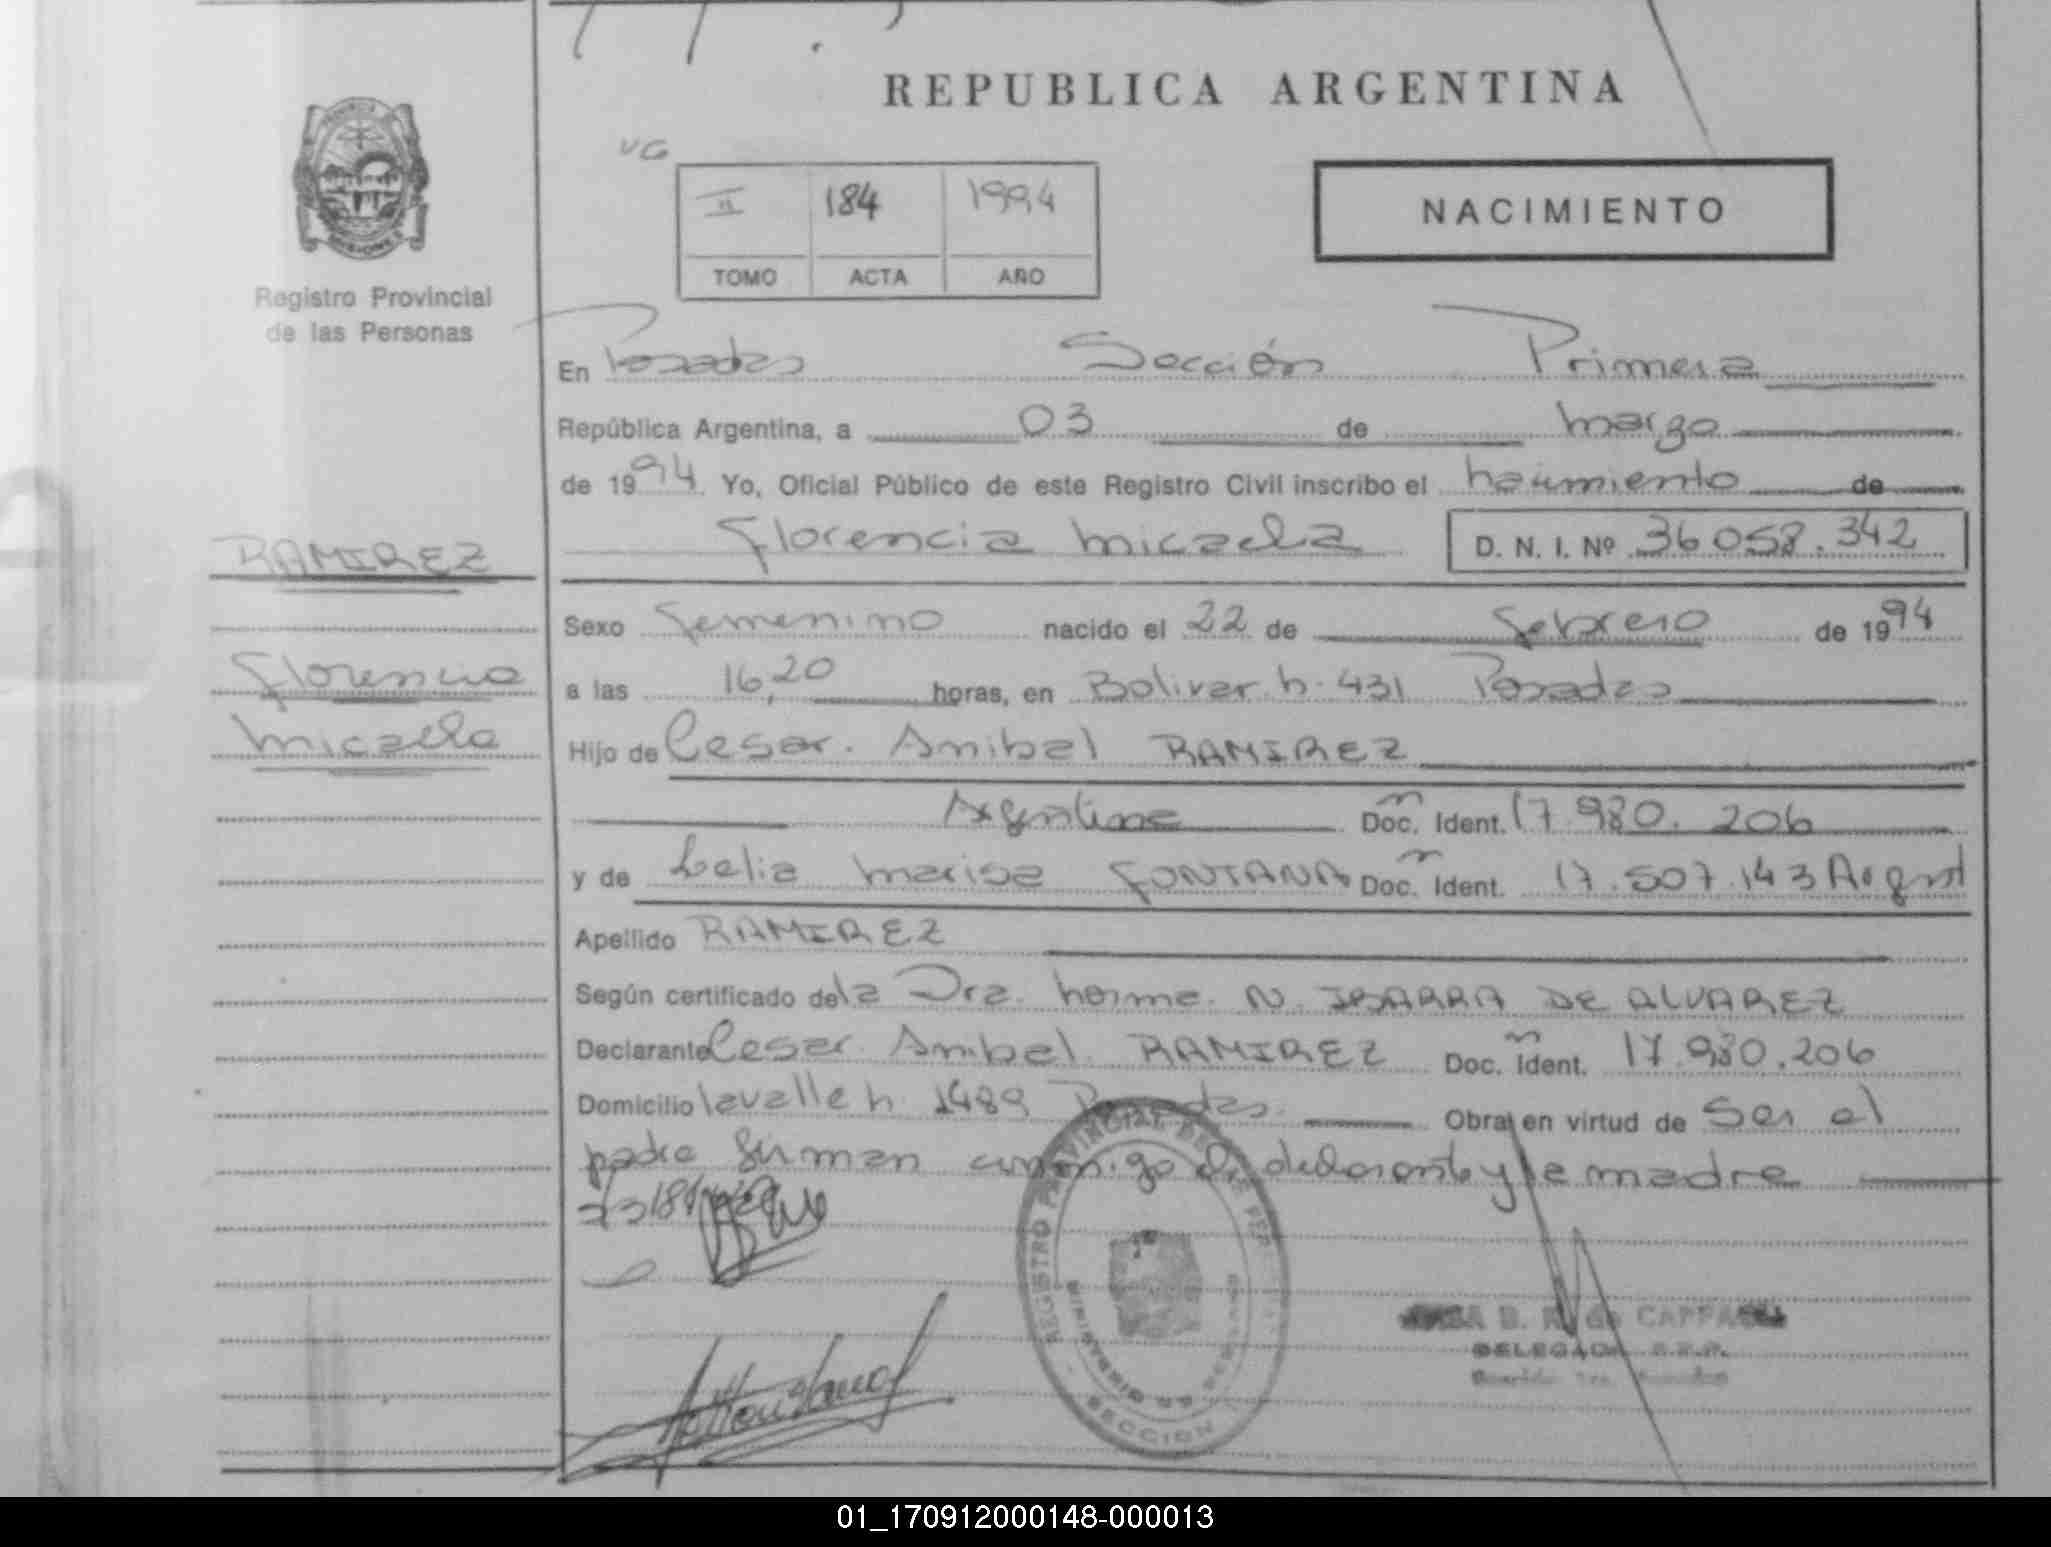 REPUBLICA ARGENTINA
VG
II 184 1994
TOMO ACTA AÑO
NACIMIENTO
MISIONES
Registro Provincial
de las Personas
En Posadas Sección Primera
República Argentina, a 03 de marzo
de 1994. Yo, Oficial Público de este Registro Civil inscribo el nacimiento de
Florencia Micaela D. N. I. Nº 36058.342
RAMIREZ
Florencia
Micaela
Sexo Femenino nacido el 22 de Febrero de 1994
a las 16,20 horas, en Bolivar n. 431 Posadas
Hijo de Cesar. Anibal RAMIREZ
Argentina Doc. Ident. 17 980. 206
y de Lelia Marisa FONTANA Doc. Ident. 17.507.143 Argent
Apellido RAMIREZ
Según certificado de la Dra. Norma. N. IBARRA DE ALVAREZ
Declarante Cesar. Anibal RAMIREZ Doc. Ident. 17.980.206
Domicilio lavalle n. 1489 Posadas Obra en virtud de Ser el
padre firman conmigo el declarante y la madre
REGISTRO PROVINCIAL DE LAS PER
SECCION
B. CAPPA
DELEGADA R.P.P.
01_170912000148-000013